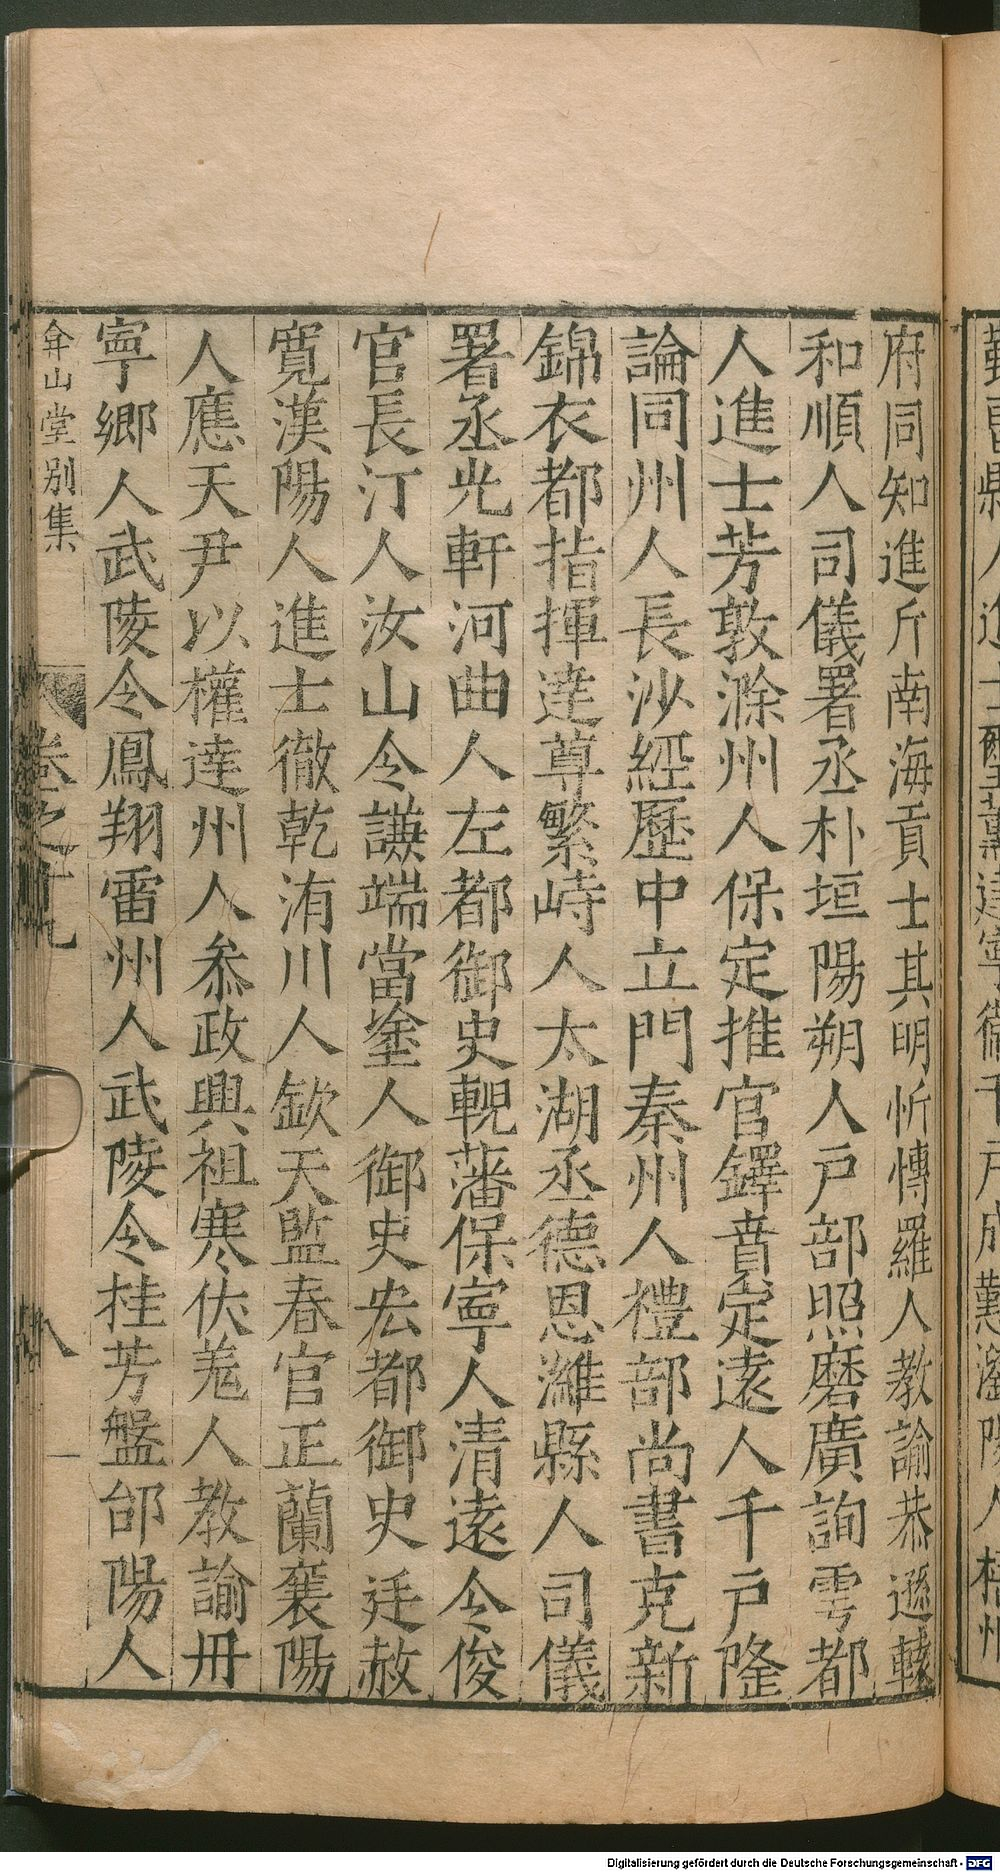 府同知進斤南海貢士其明忻慱羅人教諭恭遜轅
和順人司儀署丞朴垣陽朔人戸部照磨廣詢雩都
人進士芳敦滁州人保定推官鐸賁定逺人千戸隆
論同州人長沙經歷中立門秦州人禮部尚書克新
錦衣都指揮逹尊繁峙人太湖丞德恩濰縣人司儀
署丞光軒河曲人左都御史輗藩保寧人清逺令俊
官長汀人汝山令謙端當塗人御史宏都御史廷赦
寛漢陽人進士徹乾洧川人欽天監春官正蘭襄陽
人應天尹以權逹州人叅政興祖寒伏羌人教諭冊
寧鄉人武陵令鳳翔雷州人武陵令桂芳盤邰陽人
弇山堂別集
卷之十九
八